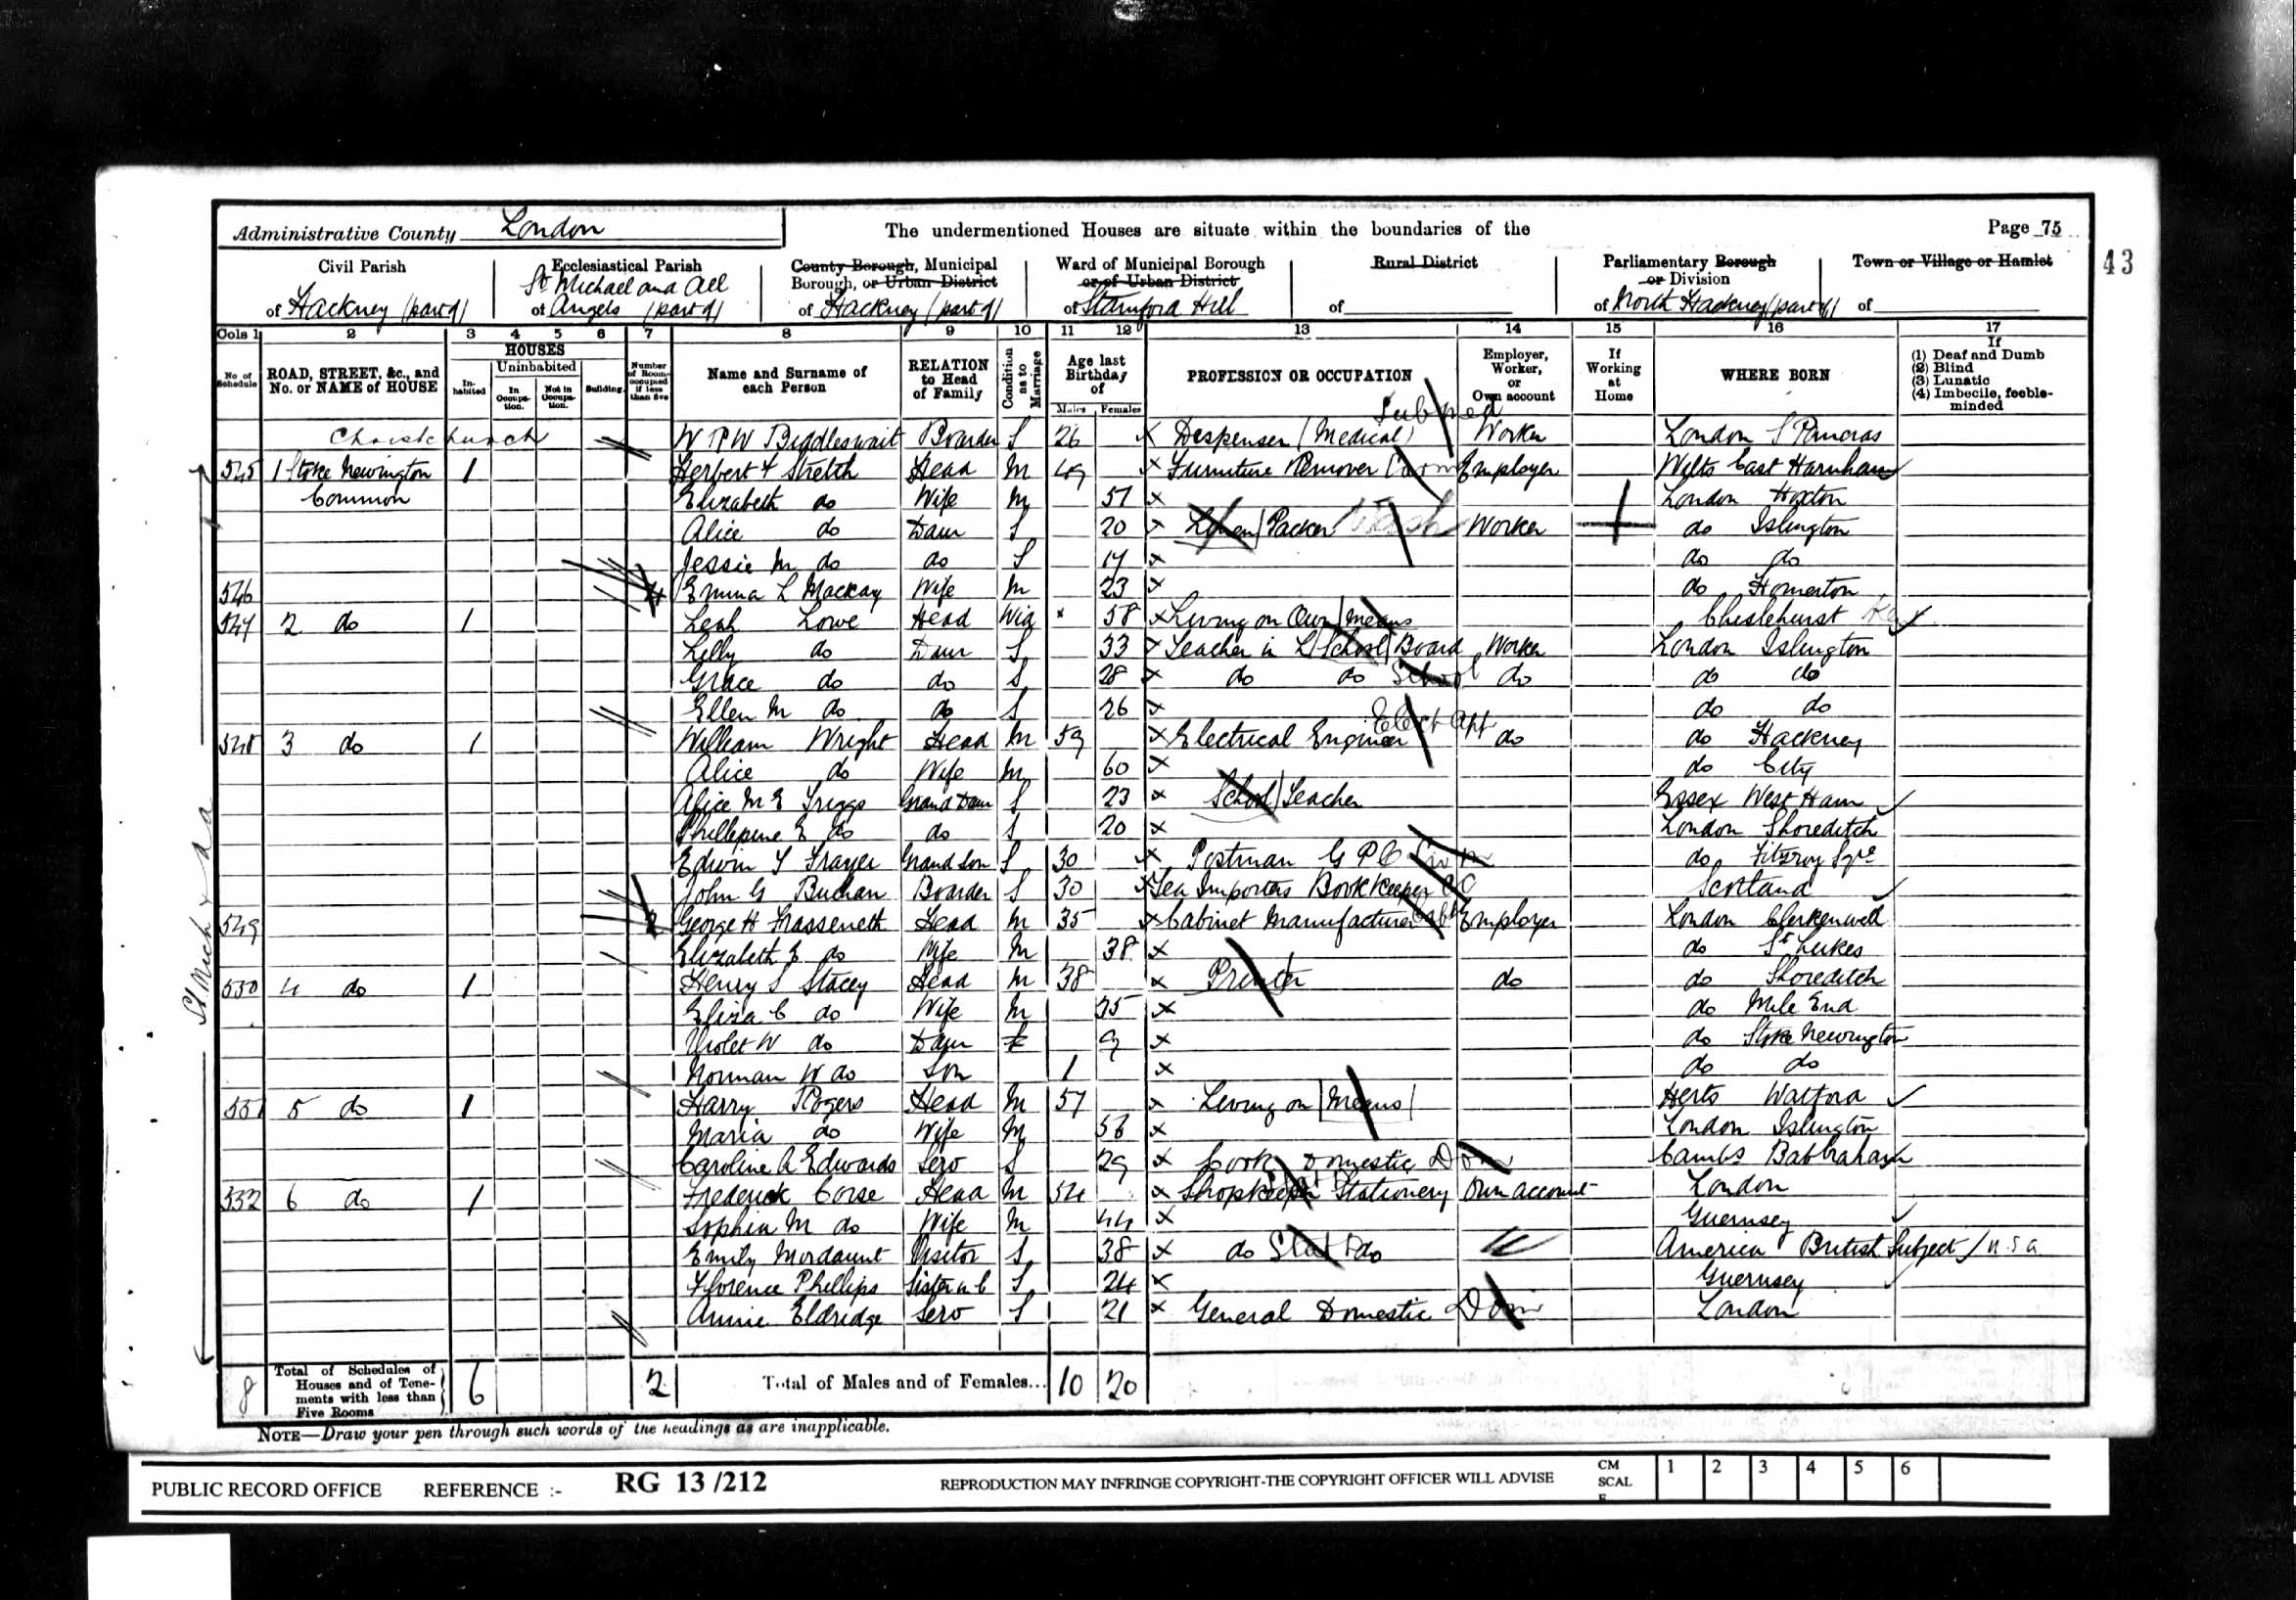 Administrative County London
The undermentioned Houses are situate within the boundaries of the
Page 75
43
Civil Parish of Hackney (part of)
Ecclesiastical Parish of St Michael and All Angels (part of)
County Borough, Municipal Borough, or Urban District of Hackney (part of)
Ward of Municipal Borough or of Urban District of Stamford Hill
Rural District of
Parliamentary Borough or Division of North Hackney (part of)
Town or Village or Hamlet of
Cols 1 2 3 4 5 6 7 8 9 10 11 12 13 14 15 16 17
No. of Schedule
ROAD, STREET, &c., and No. or NAME of HOUSE
HOUSES
Inhabited
Uninhabited
In Occupation.
Not in Occupation.
Building.
Number of Rooms occupied if less than five
Name and Surname of each Person
RELATION to Head of Family
Condition as to Marriage
Age last Birthday of
Males Females
PROFESSION OR OCCUPATION
Employer, Worker, or Own account
If Working at Home
WHERE BORN
If (1) Deaf and Dumb (2) Blind (3) Lunatic (4) Imbecile, feeble-minded
Christchurch W R W Biddleswait Boarder S 26 x Despenser (Medical) Sub Med Worker London S Pancras
545 1 Stoke Newington 1 Herbert F Stretch Head M 49 x Furniture Remover Carm Employer Wilts East Harnham
Common Elizabeth do Wife M 51 x London Hoxton
Alice do Daur S 20 x Linen Packer Worker do Islington
Jessie M do do S 17 x do do
546 4 Emma L Mackay Wife M 23 x do Homerton
547 2 do 1 Leah Lowe Head Wid 58 x Living on Own Means Cheslehurst
Lilly do Daur S 33 x Teacher in L School Board Worker London Islington
Grace do do S 28 x do do School do do do
Ellen M do do S 26 x do do
548 3 do 1 William Wright Head M 59 x Electrical Engineer Elect App do do Hackney
Alice do Wife M 60 x do City
Alice M E Griggs Grand Daur S 23 x School Teacher Essex West Ham
Phillepine E do do S 20 x London Shoreditch
Edwin T Frayer Grand Son S 30 x Postman G P O do Fitzroy Sqre
John G Buchan Boarder S 30 x Tea Importers Bookkeeper Scotland
549 2 George H Frasseneth Head M 35 x Cabinet Manufacturer Employer London Clerkenwell
Elizabeth E do Wife M 38 x do St Lukes
550 4 do 1 Henry S Stacey Head M 38 x Printer do do Shoreditch
Eliza C do Wife M 35 x do Mile End
Violet W do Daur 9 x do Stoke Newington
Norman W do Son 1 x do do
551 5 do 1 Harry Rogers Head M 57 x Living on Means Herts Watford
Maria do Wife M 56 x London Islington
Caroline A Edwards Serv S 29 x Cook Domestic Dom Cambs Babbraham
552 6 do 1 Frederick Corse Head M 54 x Shopkeeper Stationery Own account London
Sophia M do Wife M 44 x Guernsey
Emily Mordaunt Visitor S 38 x do Stat do America British Subject / U.S.A
Florence Phillips Sister in L S 24 x Guernsey
Annie Eldridge Serv S 21 x General Domestic Dom London
8 Total of Schedules of Houses and of Tenements with less than Five Rooms 6 2 Total of Males and of Females... 10 20
NOTE—Draw your pen through such words of the headings as are inapplicable.
PUBLIC RECORD OFFICE REFERENCE :- RG 13/212 REPRODUCTION MAY INFRINGE COPYRIGHT-THE COPYRIGHT OFFICER WILL ADVISE
CM SCALE 1 2 3 4 5 6